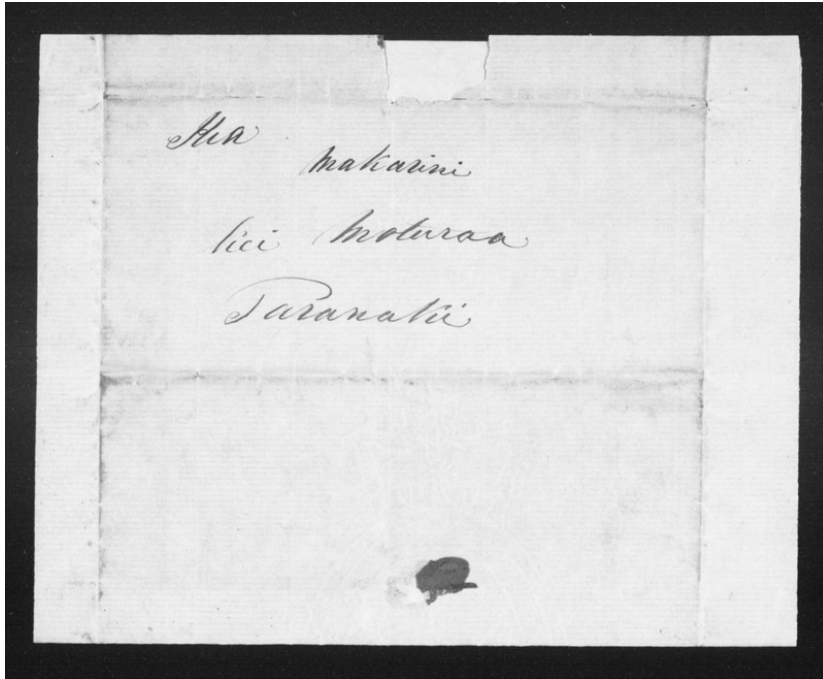 Kia
Makarini
kei Moturoa
Taranaki